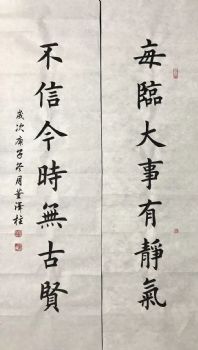 每臨大事有靜氣
不信今時無古賢
歲次庚子冬月董澤柱